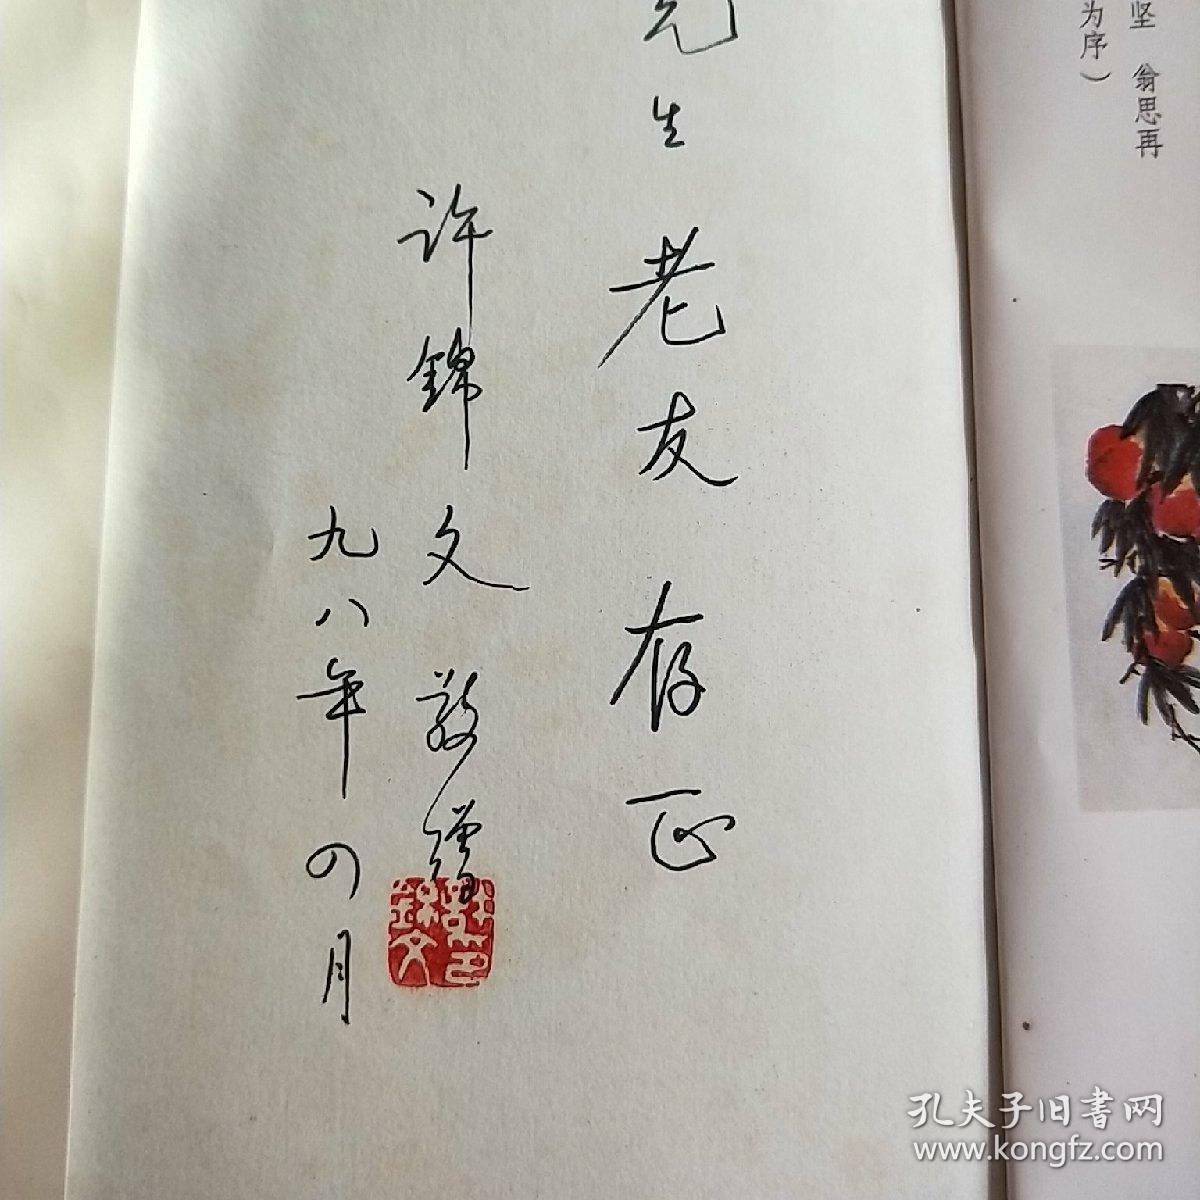 坚 翁思再
为序）
先生老友存正
许錦文敬赠
九八年四月
錦文
孔夫子旧書网
www.kongfz.com